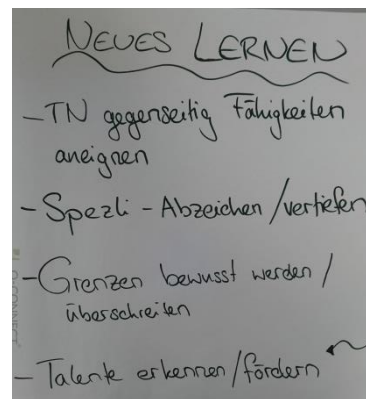 NEUES LERNEN
- TN gegenseitig Fähigkeiten
aneignen
- Spezli - Abzeichen / vertiefen
- Grenzen bewusst werden /
überschreiten
- Talente erkennen / fördern